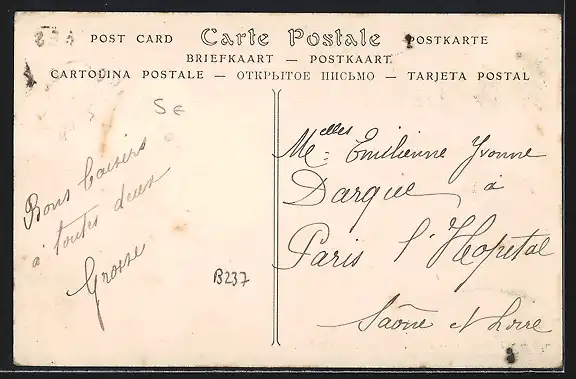 POST CARD Carte Postale POSTKARTE
BRIEFKAART — POSTKAART
CARTOLINA POSTALE — ОТКРЫТОЕ ПИСЬМО — TARJETA POSTAL
Bons baisers
à toutes deux
B237
Melles Emilienne Yvonne
Dargue à
Paris l'Hopital
Saône et Loire